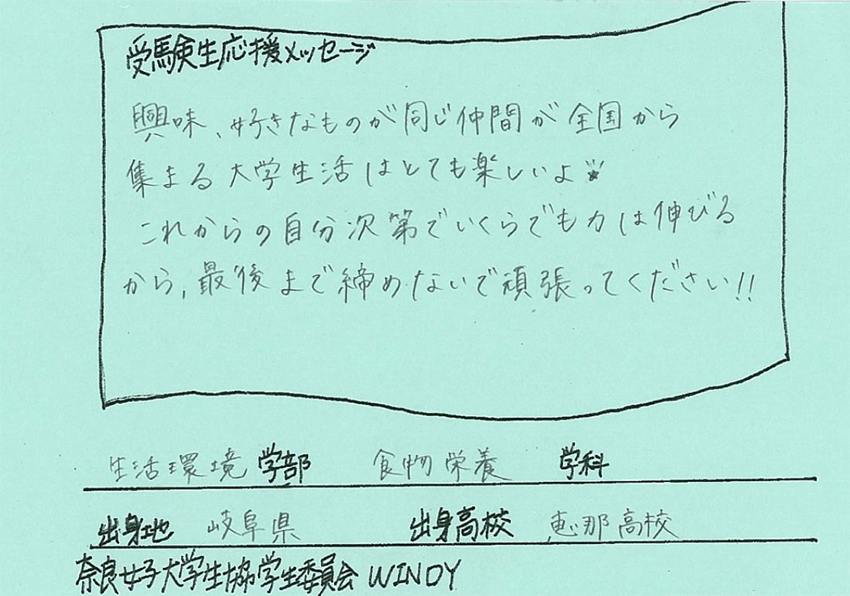 受験生応援メッセージ
興味、好きなものが同じ仲間が全国から
集まる大学生活はとても楽しいよ
これからの自分次第でいくらでも力は伸びる
から、最後まで締めないで頑張ってください!!
生活環境 学部 食物栄養 学科
出身地 岐阜県 出身高校 恵那高校
奈良女子大学生協学生委員会 WINDY